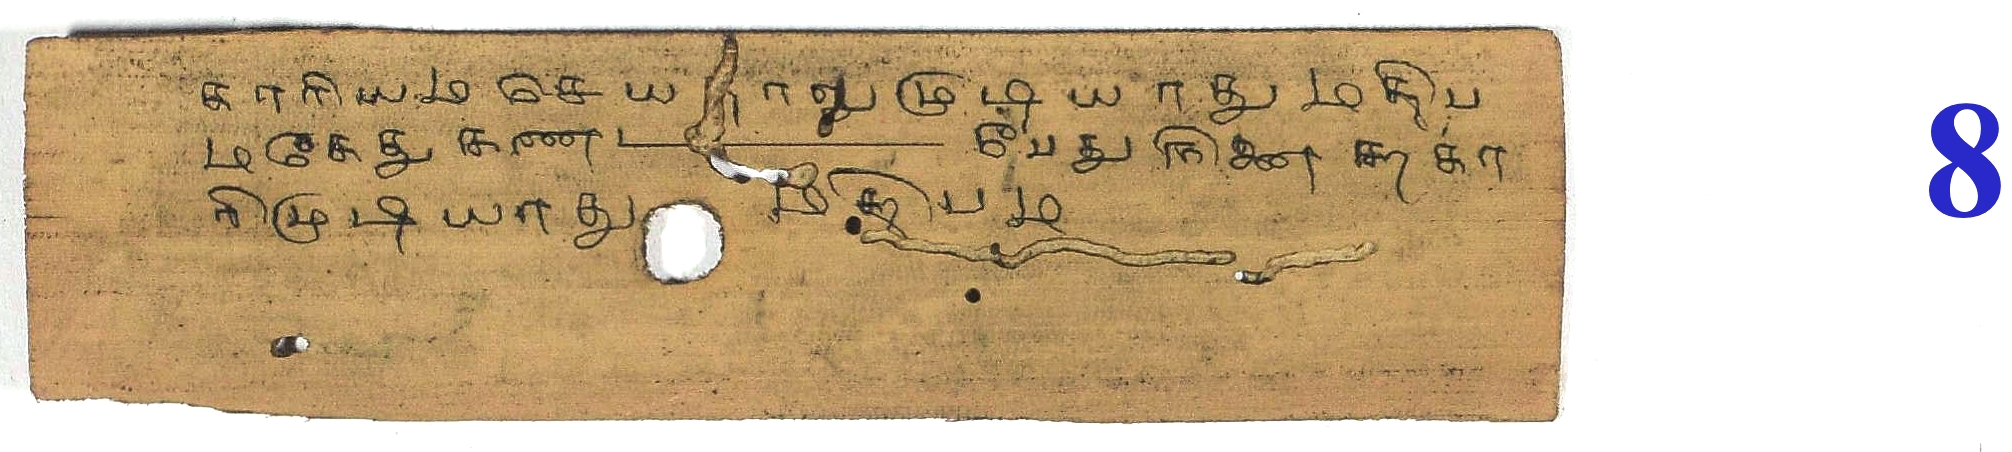 காரியம செயதாலுமுடியாது மதிப
மகேது கண ——— பேது நினை காரகா
ரிமுடியாது மதிபம
8